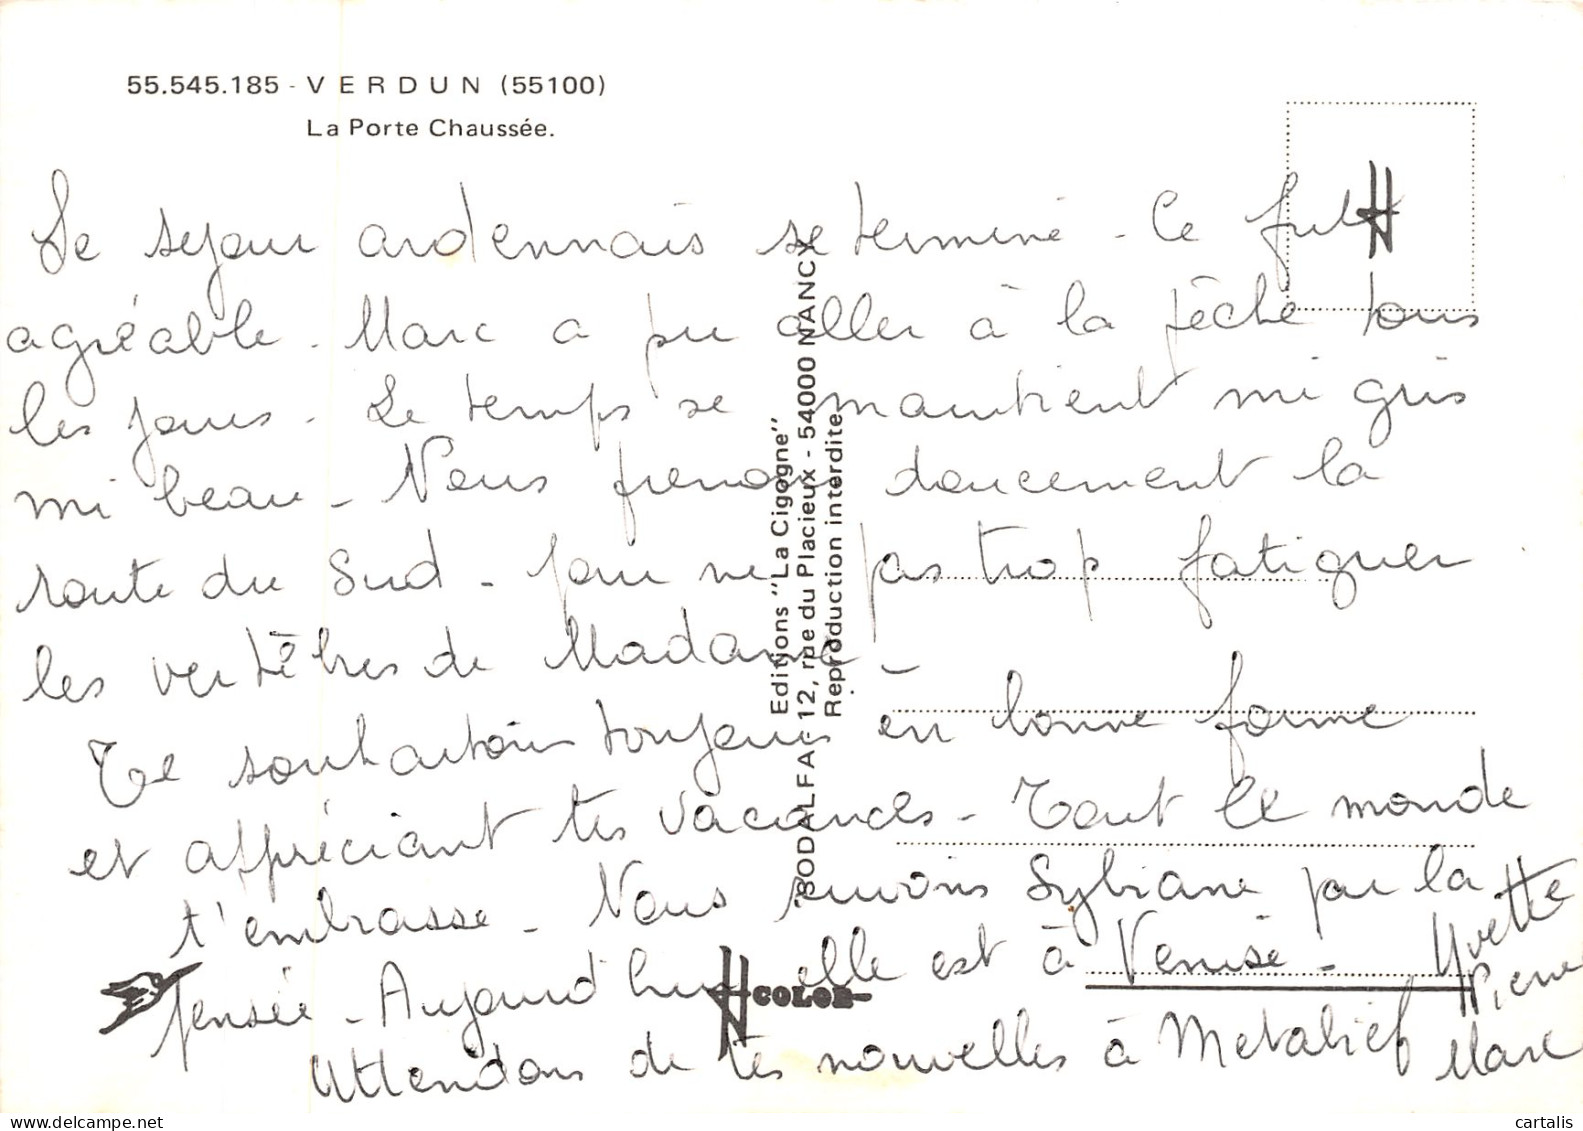 55.545.185 - VERDUN (55100)
La Porte Chaussée.
Le sejour ardennais se termine - Ce fut
agréable - Marc a pu aller à la pêche tous
les jours - Le temps se maintient mi gris
mi beau - Nous prenons doucement la
route du Sud - pour ne pas trop fatiguer
les vertèbres de Madame -
Te souhaitons toujours en bonne forme
et appréciant tes vacances - Tout le monde
t'embrasse - Nous suivons Sylviane par la
pensée - Aujourd'hui elle est à Venise -
Attendons de tes nouvelles à Metabief
Yvette
Pierre
Marc
Editions "La Cigogne"
SODALFA - 12, rue du Placieux - 54000 NANCY
Reproduction interdite
COLOR
cartalis
delcampe.net